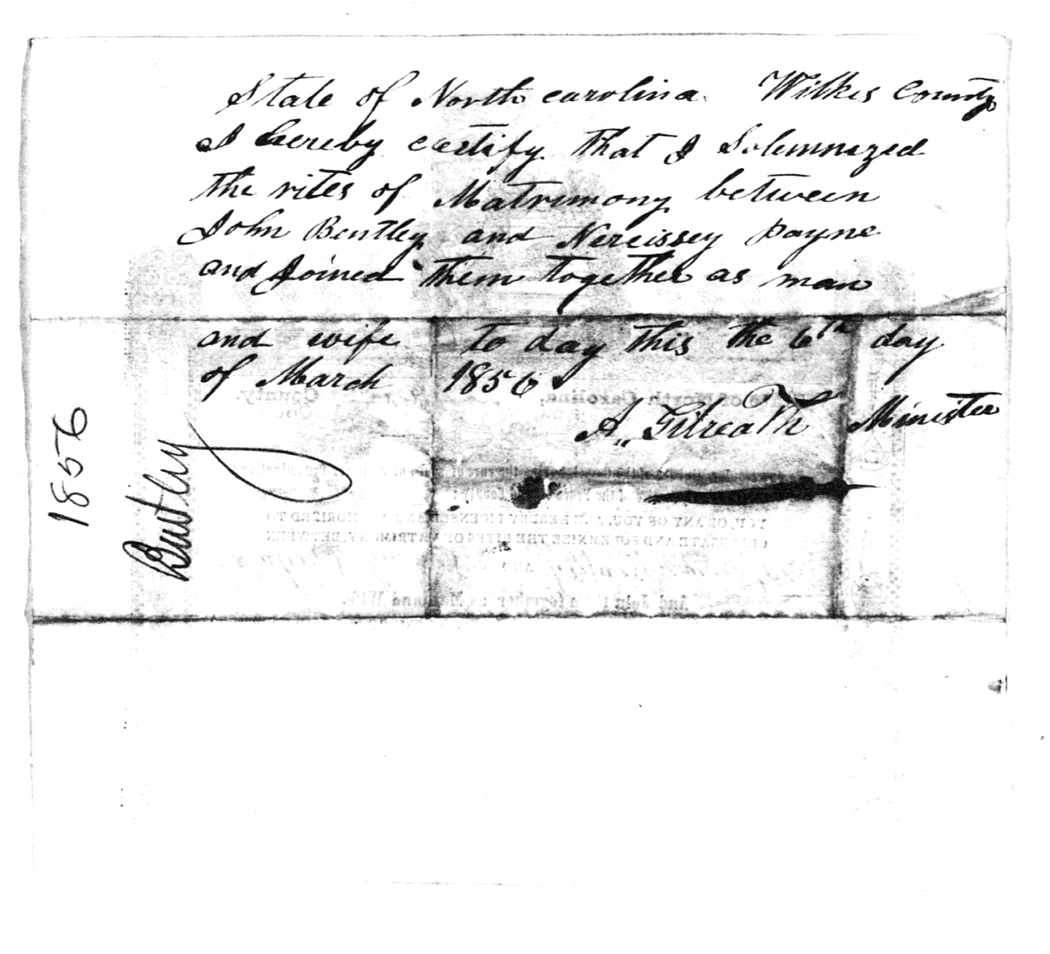 State of North carolina. Wilkes County
I hereby certify that I Solemnized
the rites of Matrimony between
John Bentley and Nercissey payne
and Joined them together as man
and wife to day this the 6th day
of March 1856
A,, Gilreath Minister
1856
Bentley
of North Carolina, County.
YOU, OR ANY OF YOU, ARE HEREBY LICENSED AND AUTHORISED TO
CELEBRATE AND SOLEMNIZE THE RITES OF MATRIMONY, BETWEEN
AND
And Join them together as Man and Wife.